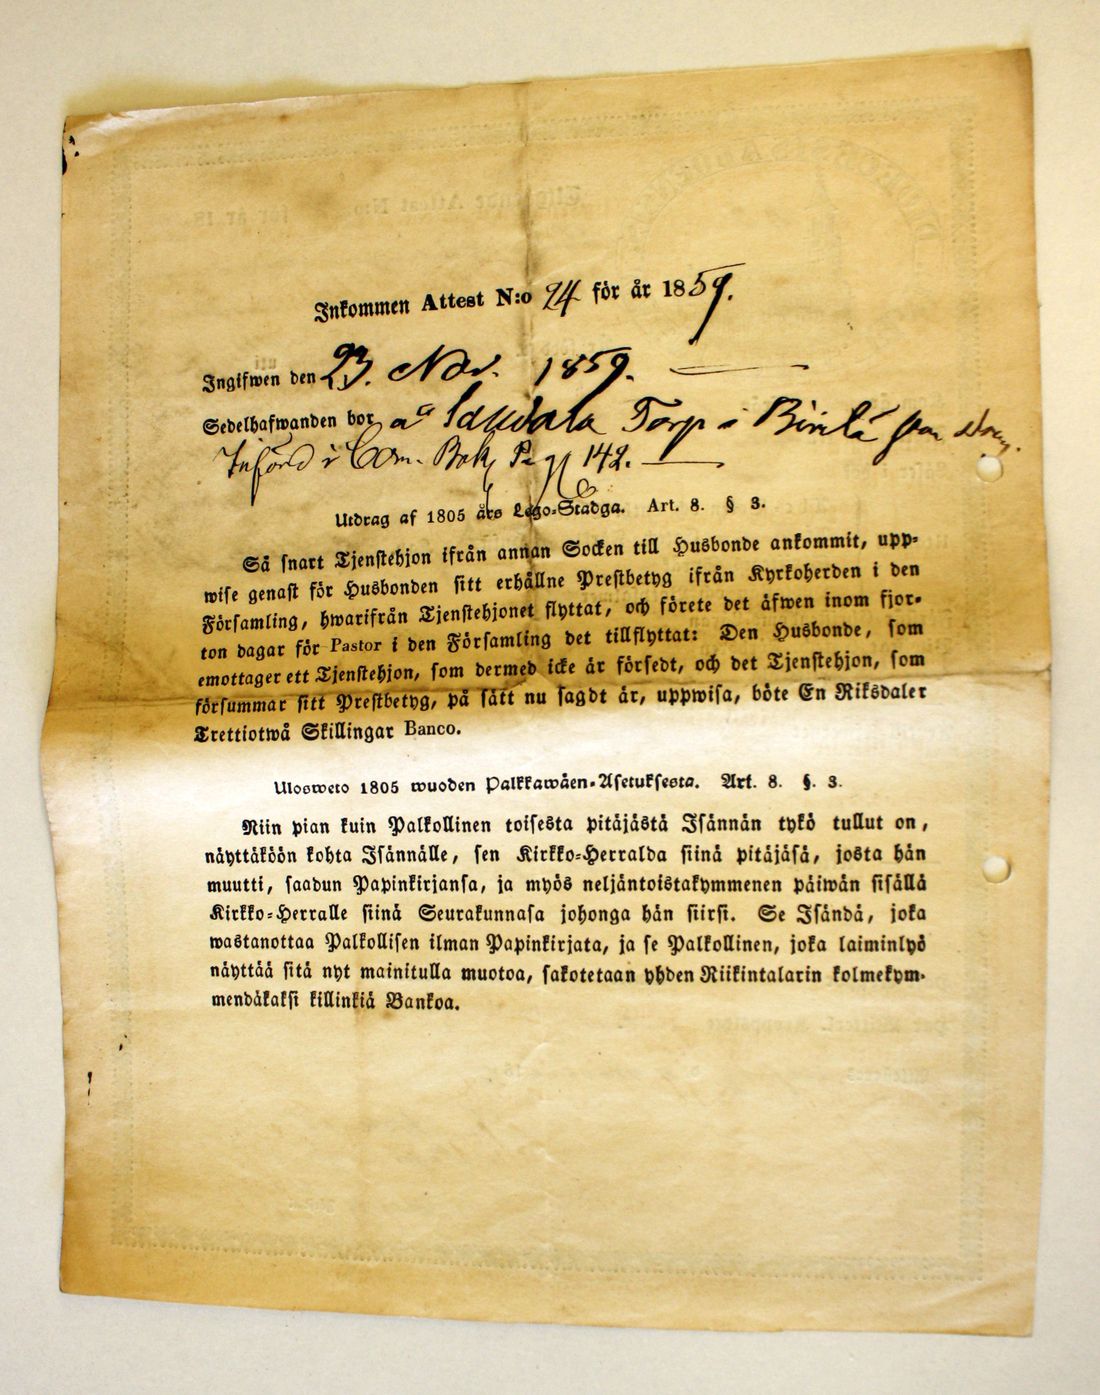 Inkommen Attest N:o 24 för år 1859.
Ingifwen den 23. Nov. 1859.
Sedelhafwanden bor å Torp i
Införd i Com. Bok, Pag 142.
Utdrag af 1805 års Lego-Stadga. Art. 8. § 3.
Så snart Tjenstehjon ifrån annan Socken till Husbonde ankommit, upp-
wise genast för Husbonden sitt erhållne Prestbetyg ifrån Kyrkoherden i den
Församling, hwarifrån Tjenstehjonet flyttat, och förete det äfwen inom fjor-
ton dagar för Pastor i den Församling det tillflyttat: Den Husbonde, som
emottager ett Tjenstehjon, som dermed icke är försedt, och det Tjenstehjon, som
försummar sitt Prestbetyg, på sätt nu sagdt är, uppwisa, böte En Riksdaler
Trettiotwå Skillingar Banco.
Ulosweto 1805 wuoden Palkkawäen-Asetuksesta. Art. 8. §. 3.
Niin pian kuin Palkollinen toisesta pitäjästä Isännän tykö tullut on,
näyttäköön kohta Isännälle, sen Kirkko-Herralda siinä pitäjäsä, josta hän
muutti, saadun Papinkirjansa, ja myös neljäntoistakymmenen päiwän sisällä
Kirkko-Herralle siinä Seurakunnasa johonga hän siirsi. Se Isändä, joka
wastanottaa Palkollisen ilman Papinkirjata, ja se Palkollinen, joka laiminlyö
näyttää sitä nyt mainitulla muotoa, sakotetaan yhden Riikintalarin kolmekym-
mendäkaksi killinkiä Bankoa.